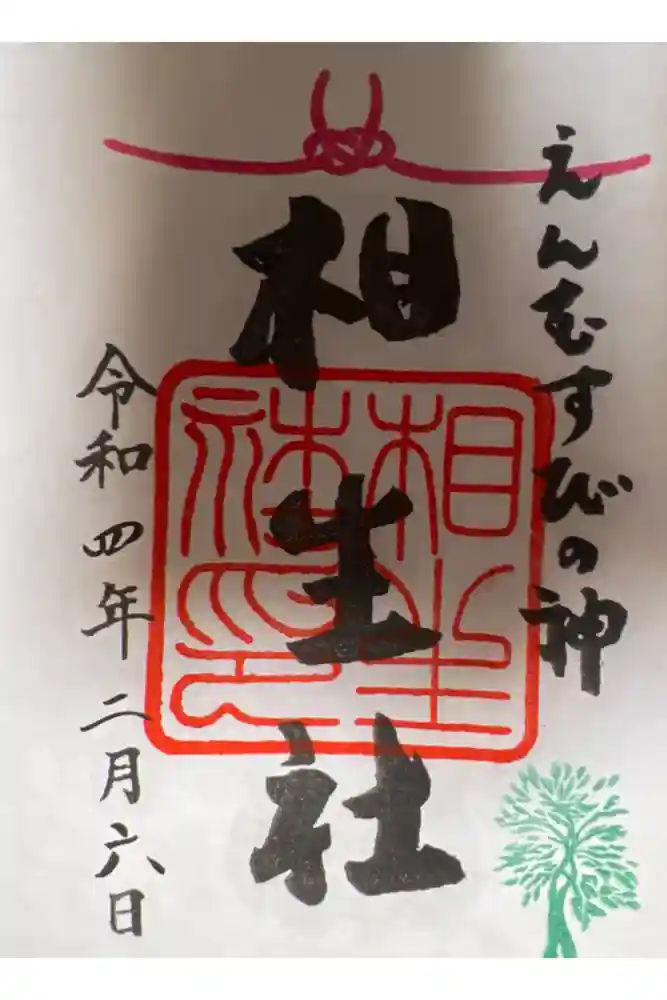 えんむすびの神
相生社
相生社印
令和四年二月六日